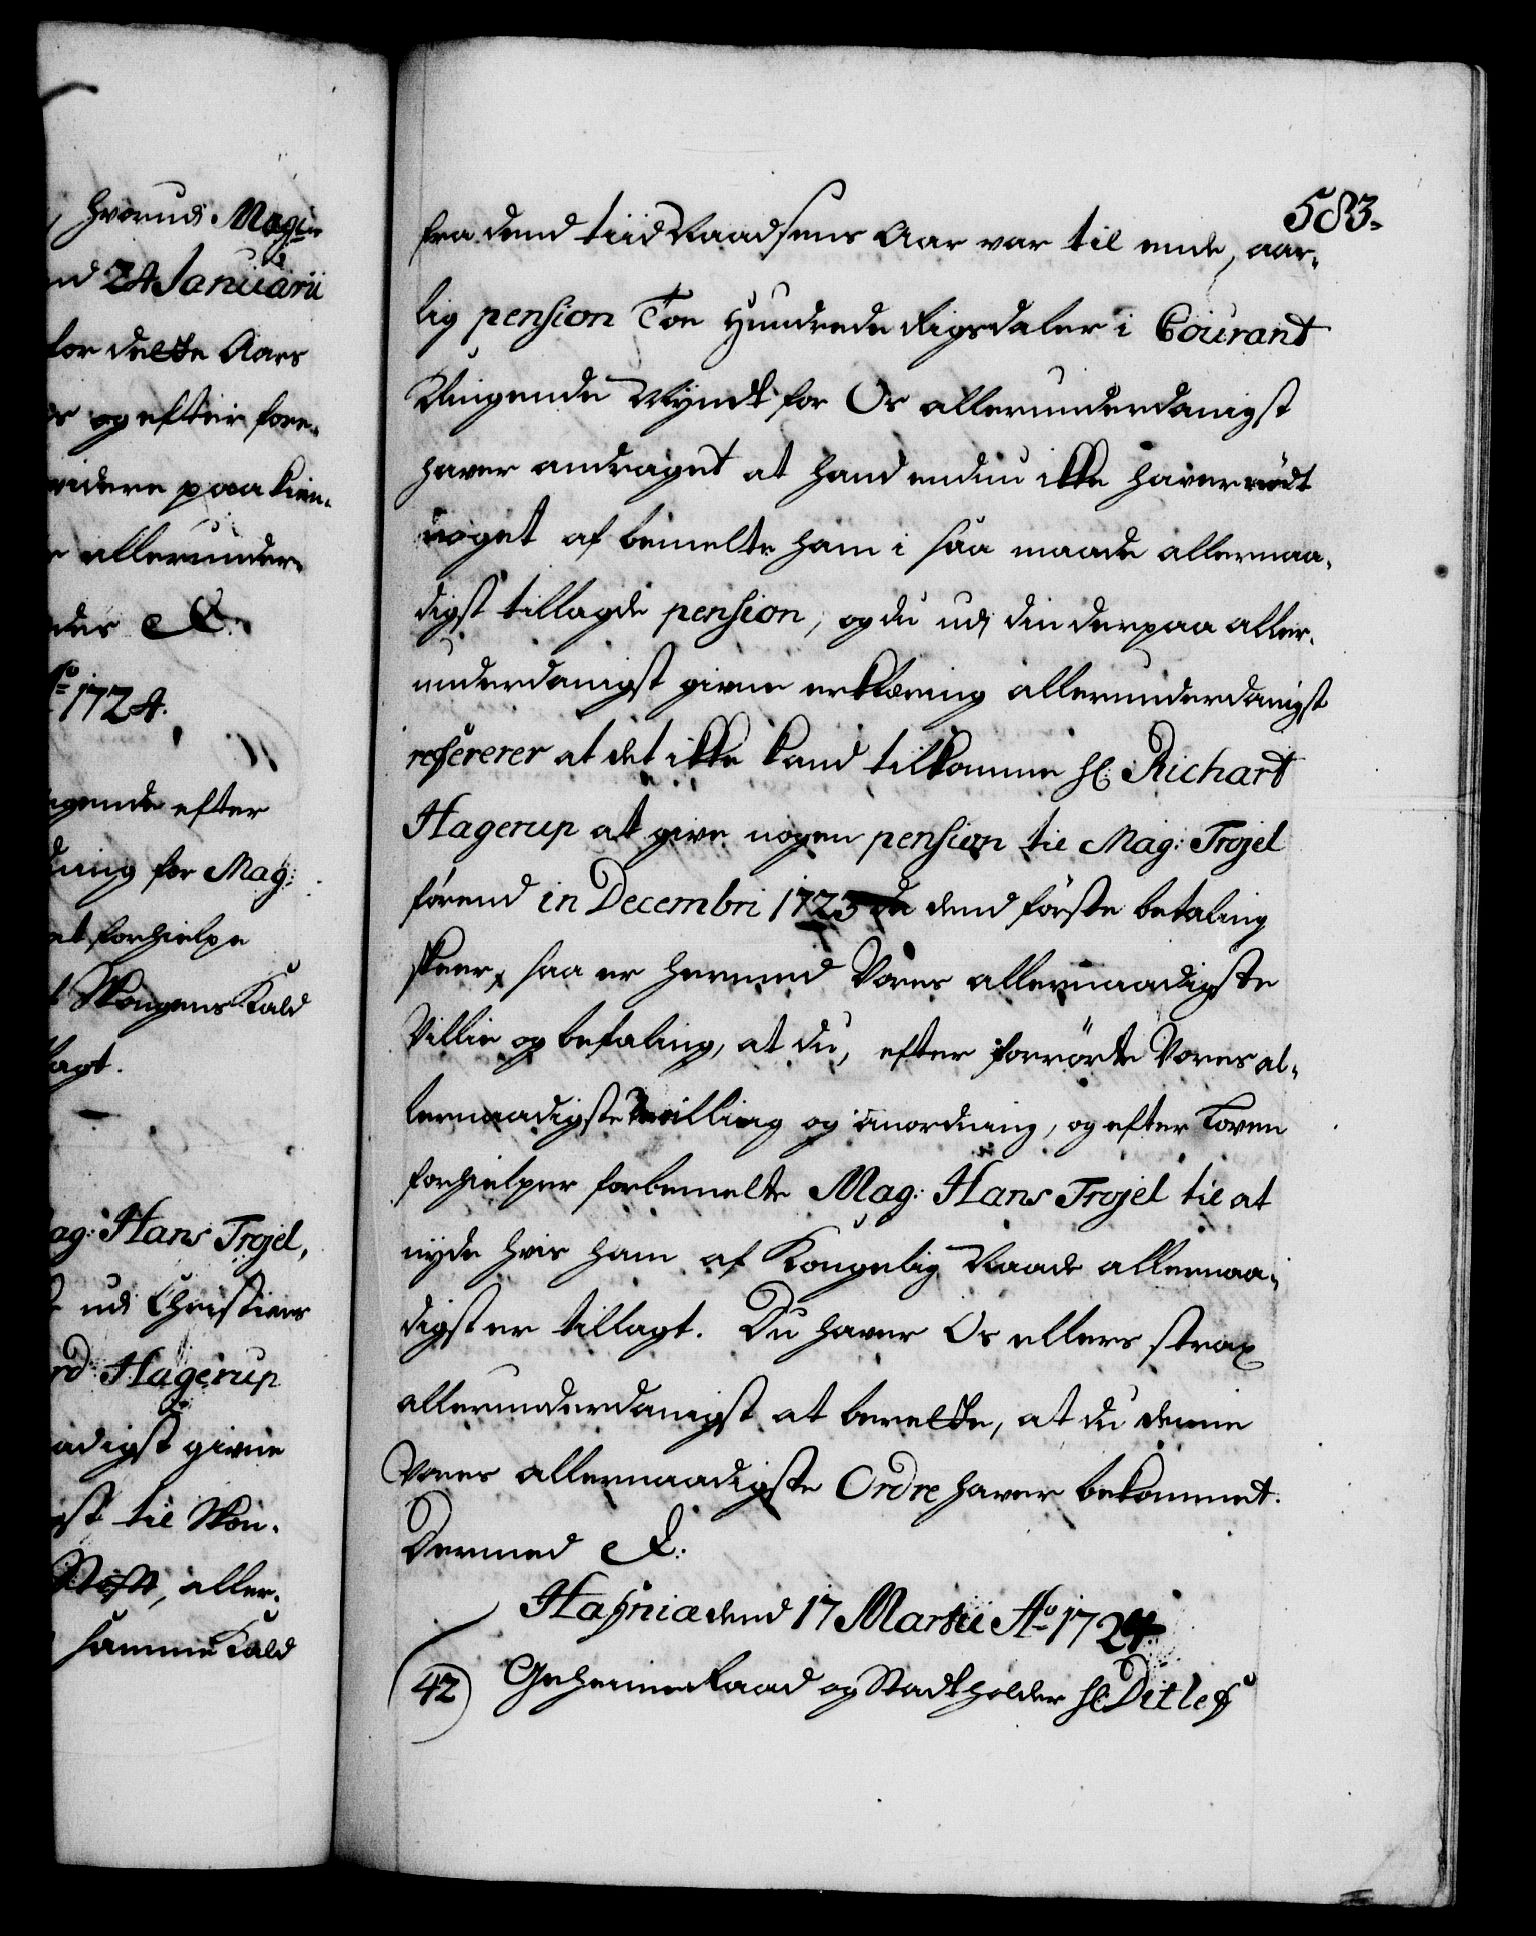 hvorudi Mag:
nd 24 Januarii
for dette Aars
og efter fore-
videre paakien-
allerunder-
des &c.
1724.
gende efter
ning for Mag:
et forhielpe
Kongens Kald
lagt.
ag: Hans Trojel,
udi Christians
rd Hagerup
adigst givne
gst til Kon-
Stift, aller-
samme Kald
583.
fra dend tiid Naadsens Aar var til ende, aar-
lig pension Toe Hundrede Rigsdaler i Courant
Klingende Myndt for Os allerunderdanigst
haver andraget at hand endnu ikke haver nødt
noget af bemelte ham i saa maade allernaa-
digst tillagde pension, og du udi din derpaa aller-
underdanigst givne erklæring allerunderdanigst
refererer at det ikke kand tilkomme Hr: Richart
Hagerup at give nogen pension til Mag: Trojel
førend in Decembri 1723 da dend første betaling
skeer, saa er hermed Vores allernaadigste
Villie og befaling, at du, efter forrørte Vores al-
lernaadigste bevilling og anordning, og efter Loven
forhielper forbemelte Mag: Hans Trojel til at
nyde hvis ham af Kongelig Naade allernaa-
digst er tillagt. Du haver Os ellers strax
allerunderdanigst at berette, at du denne
Vores allernaadigste Ordre haver bekommet.
Dermed &c:
Hafniæ dend 17 Martii Ao 1724
42 Geheime Raad og Stadtholder Hr: Ditlef